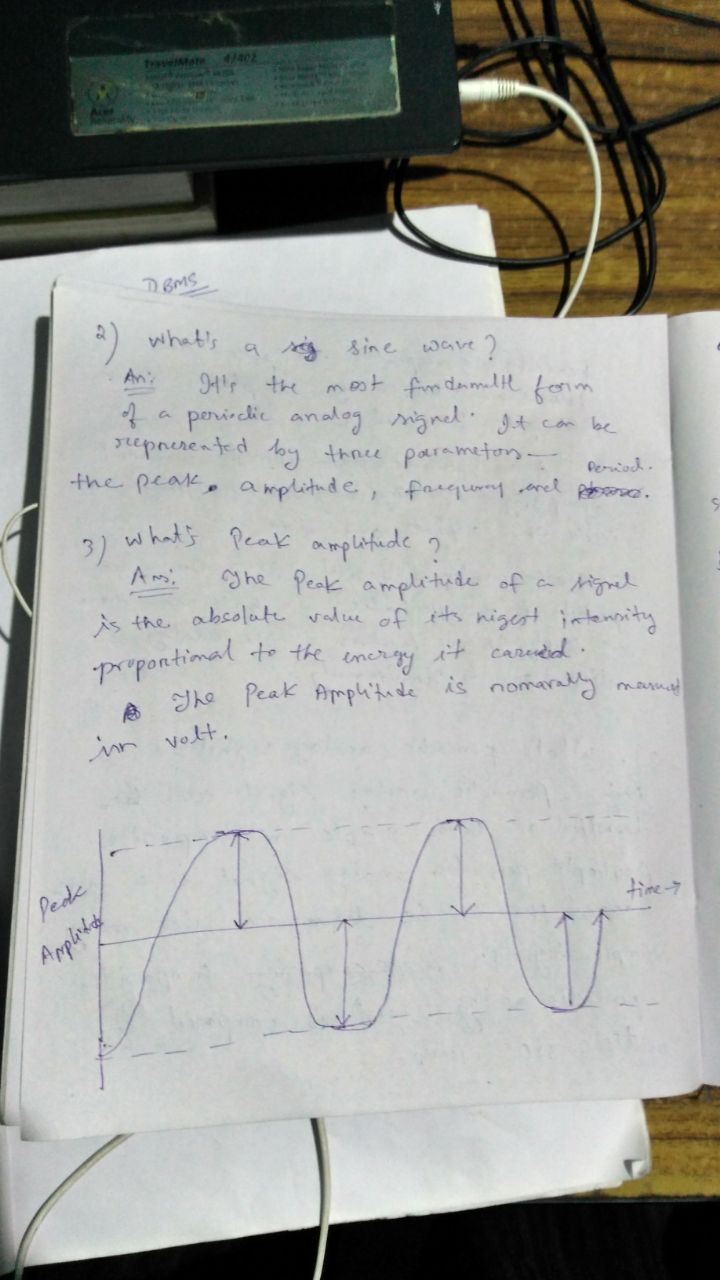 TravelMate 4740Z
Acer
DBMS
2) What's a sine wave?
An: It's the most fundamentl form
of a periodic analog signal. It can be
reepresented by three parameters —
the peak amplitude, frequency and Period.
3) What's Peak amplitude ?
Ans: The Peak amplitude of a signel
is the absolute value of its higest intensity
proportional to the energy it carried.
The Peak Amplitude is nomarally
inn volt.
Peak
Amplitude
time →